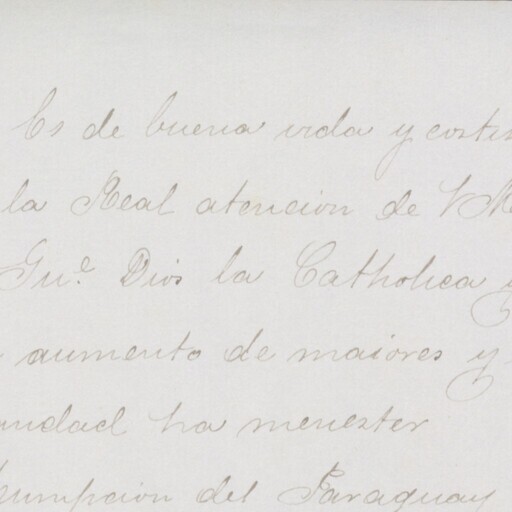 Es de buena vida y
la Real atencion de V
Gu.e Dios la Catholica y
aumento de maiores y
ha menester
del Paraguay